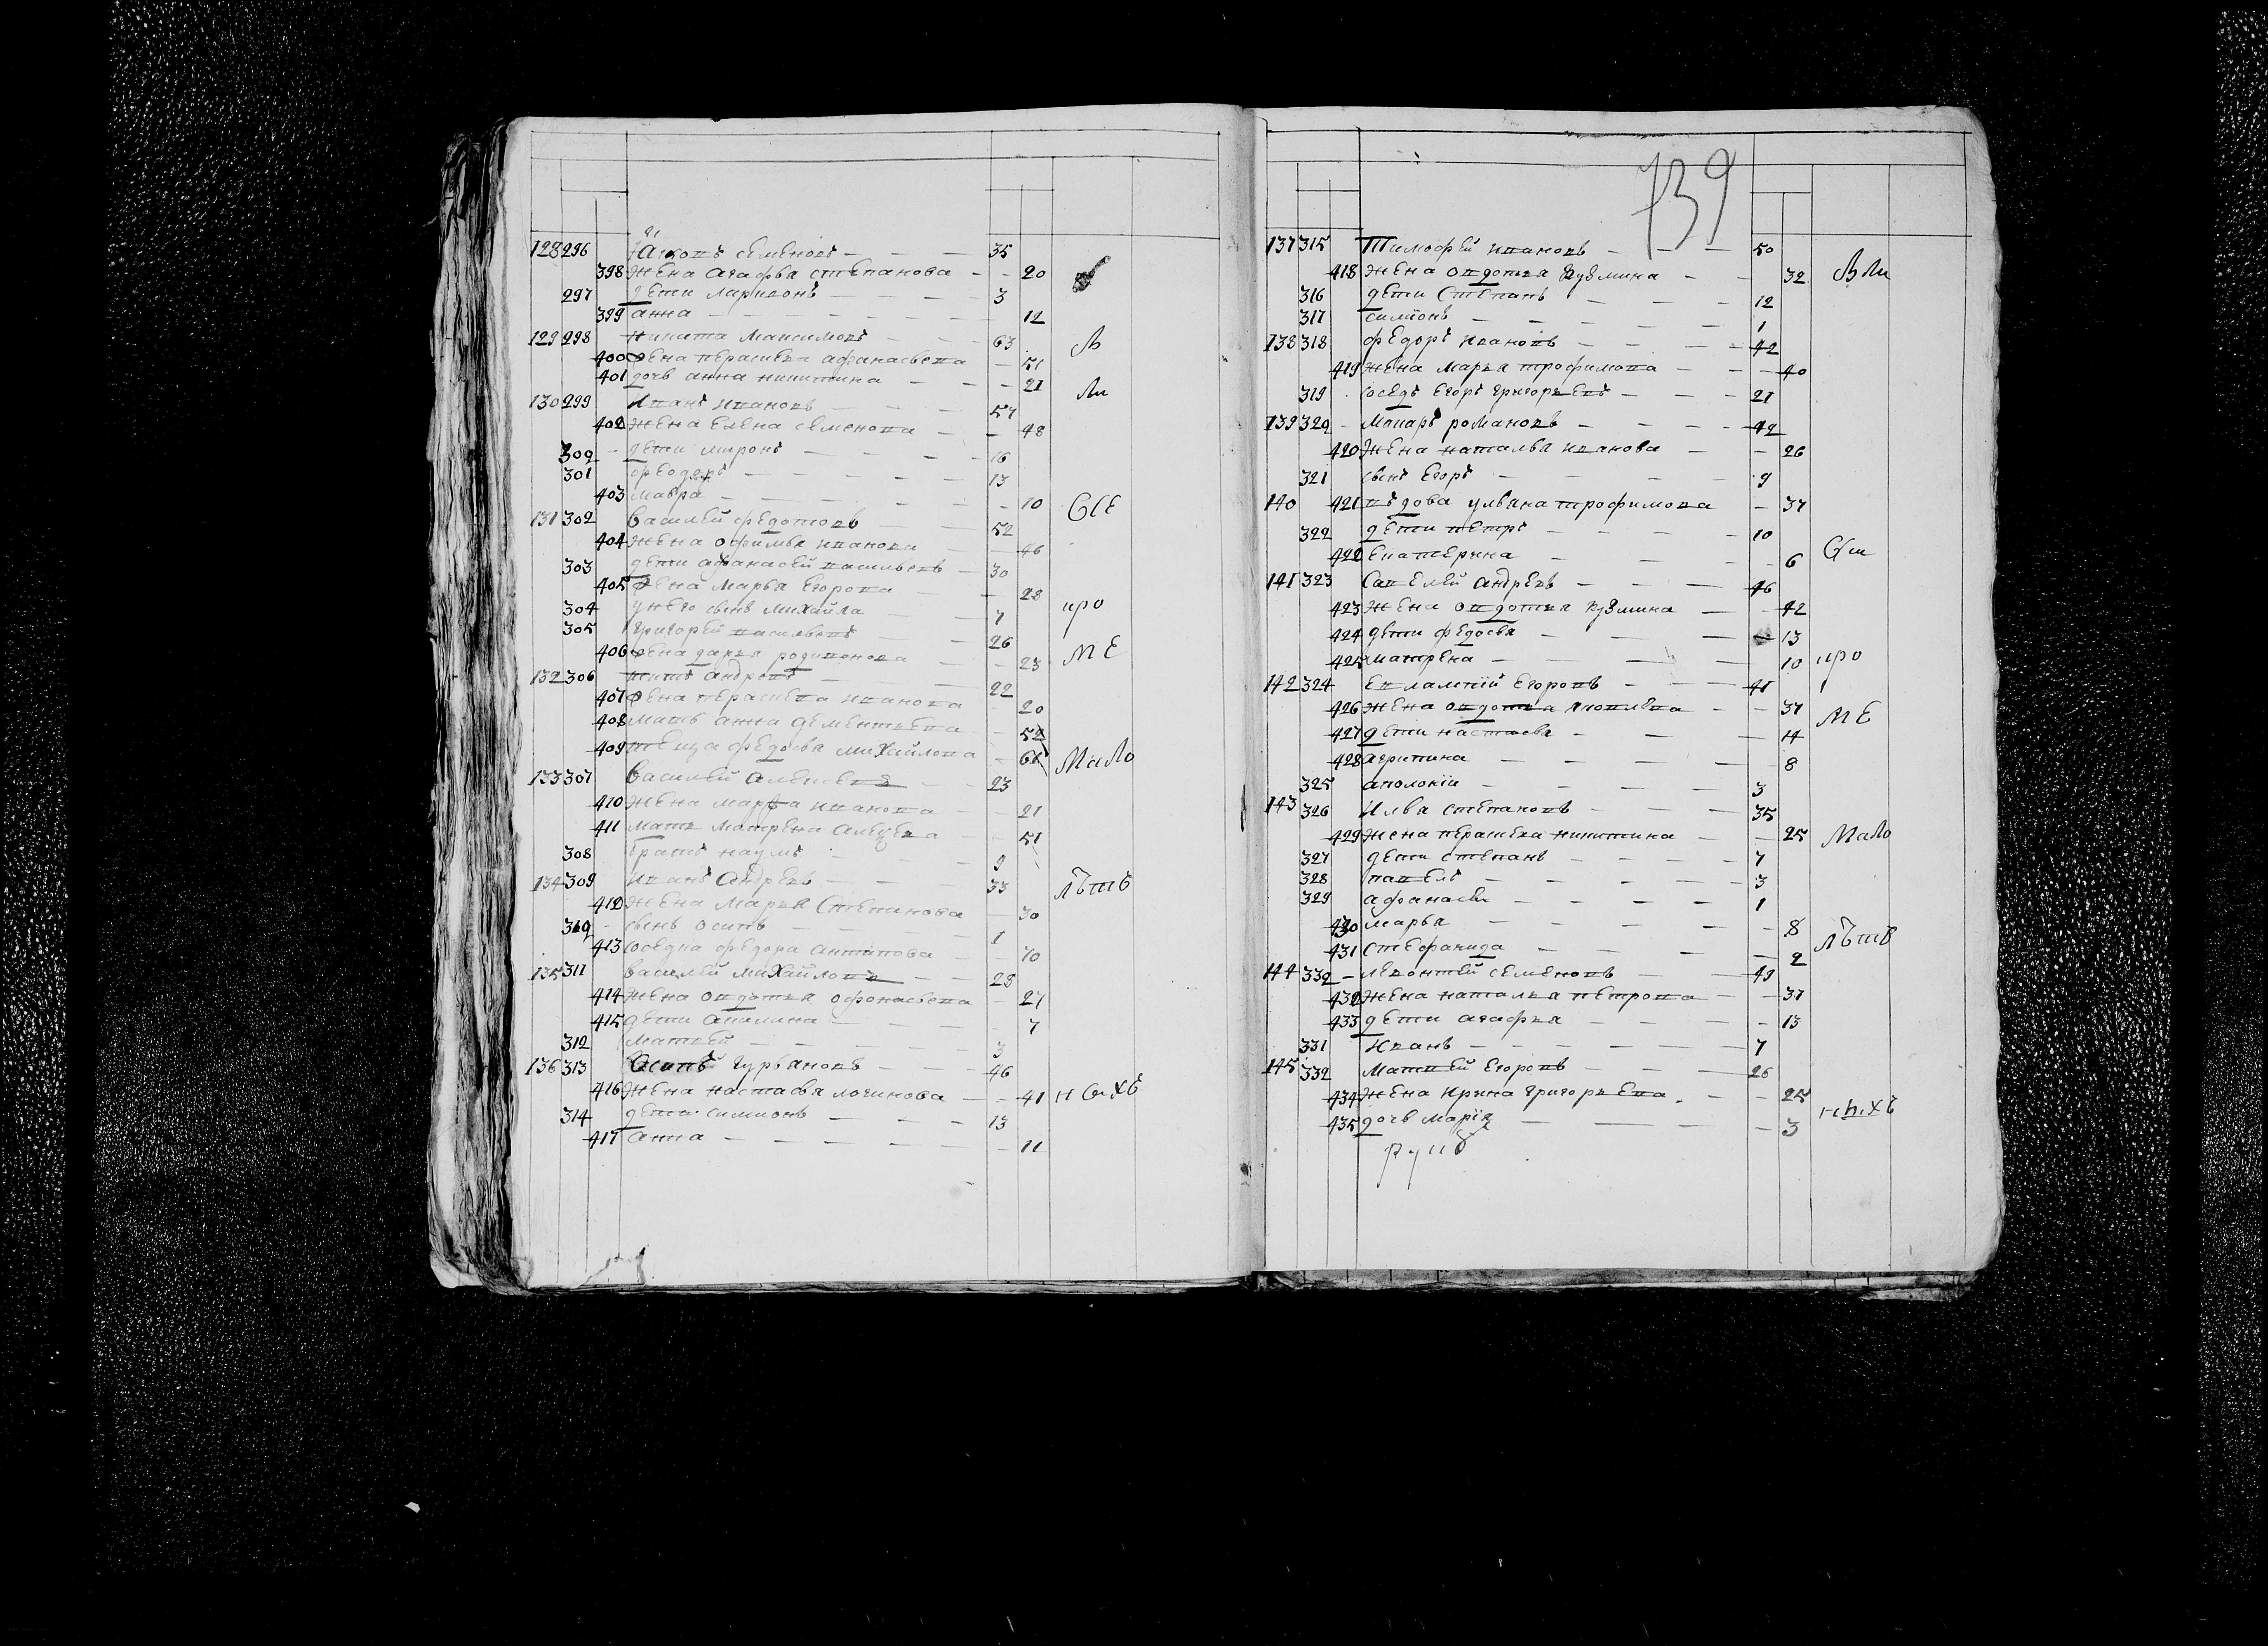 128 296 Яковъ семеновъ 35
398 жена агафья степанова 20
297 дети ларивонъ 3
399 анна 12
129 298 никита максимовъ 63 В
400 жена перасковья афанасьева 51
401 дочь анна никитина 21 ли
130 299 иванъ ивановъ 57
402 жена елена семенова 48
300 дети миронъ 16
301 феодоръ 13
403 мавра 10 Все
131 302 василей федотовъ 52
404 жена офимья иванова 46
303 дети афанасей васильевъ 30
405 жена марья егорова 28
304 у него сынъ михайла 7 про
305 григорей васильевъ 26
406 жена дарья родивонова 23 МЕ
132 306 титъ андреевъ 22
407 жена перасковья иванова 20
408 мать анна дементьева 52
409 теща федосья михайлова 61 мало
133 307 василей алексеевъ 23
410 жена марфа иванова 21
411 мать матрена алексеева 51
308 братъ наумъ 9
134 309 иванъ андреевъ 33 лѣтѣ
412 жена марья степанова 30
310 сынъ осипъ 1
413 соседка федора антипова 70
135 311 василей михайловъ 28
414 жена овдотья офонасьева 27
415 дети акилина 7
312 матвей 3
136 313 Осипъ гурьяновъ 46
416 жена настасья логинова 41
314 дети симионъ 13
417 анна 11
739
137 315 Тимофей ивановъ 50
418 жена овдотья кузмина 32
316 дети степанъ 12
317 симїонъ 1
138 318 федоръ ивановъ 42
419 жена марья трофимова 40
319 соседъ егоръ григорьевъ 21
139 320 макаръ романовъ 42
420 жена наталья иванова 26
321 сынъ егоръ 9
140 421 вдова ульяна трофимова 37
322 дети петръ 10
422 екатерина 6
141 323 савелей андреевъ 46
423 жена овдотья кузмина 42
424 дети федосья 13
425 матрена 10 про
142 324 евлампїй егоровъ 41
426 жена овдотья яковлева 37 МЕ
427 дети настасья 11
428 агрипина 8
325 аполонїи 3
143 326 илья степановъ 35
429 жена перасковья никитина 25 мало
327 дети степанъ 7
328 павелъ 3
329 афанасеи 1
430 марья 8
431 стефанида 2 лѣтѣ
144 330 левонтей семеновъ 49
432 жена наталья петрова 37
433 дети агафья 13
331 иванъ 7
145 332 матвей егоровъ 26
434 жена ирина григорьева 25
435 дочь марїя 3
руцѣ